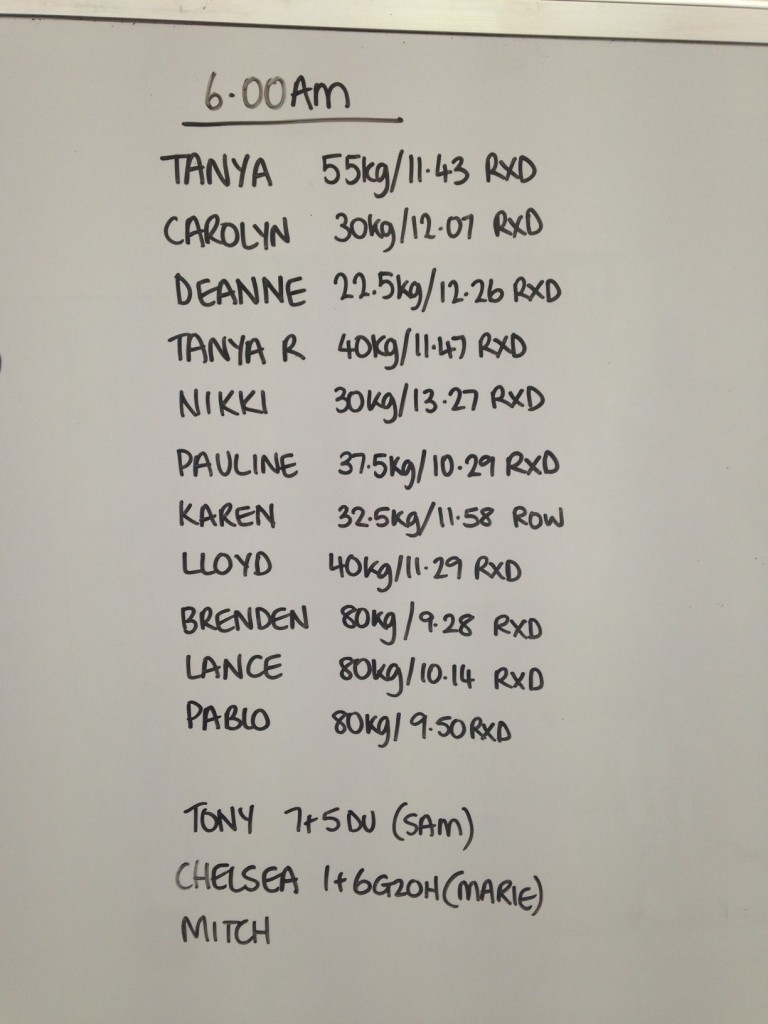 6.00AM
TANYA 55kg/11.43 RXD
CAROLYN 30kg/12.07 RXD
DEANNE 22.5kg/12.26 RXD
TANYA R 40kg/11.47 RXD
NIKKI 30kg/13.27 RXD
PAULINE 37.5kg/10.29 RXD
KAREN 32.5kg/11.58 ROW
LLOYD 40kg/11.29 RXD
BRENDEN 80kg/9.28 RXD
LANCE 80kg/10.14 RXD
PABLO 80kg/9.50 RXD
TONY 7+5DU (SAM)
CHELSEA 1+6G2OH (MARIE)
MITCH